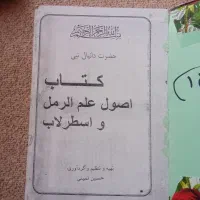 بسم الله الرحمن الرحیم
حضرت دانیال نبی
کتاب
اصول علم الرمل
و اسطرلاب
تهیه و تنظیم و گردآوری:
حسین نمینی